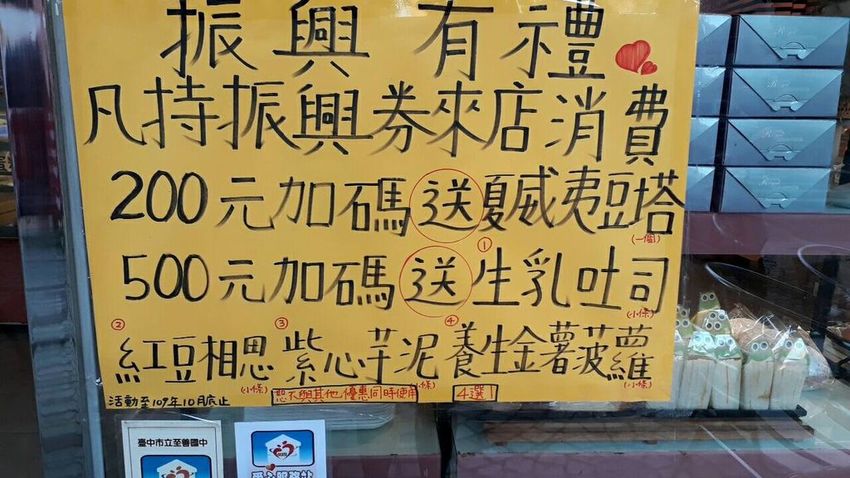 振興有禮
凡持振興券來店消費
200元加碼送夏威夷豆塔
(一個)
500元加碼送①生乳吐司
(小條)
②紅豆相思③紫心芋泥④養生金薯菠蘿
(小條)
(小條)
活動至109年10月底止
恕不與其他優惠同時使用
4選1
臺中市立至善國中